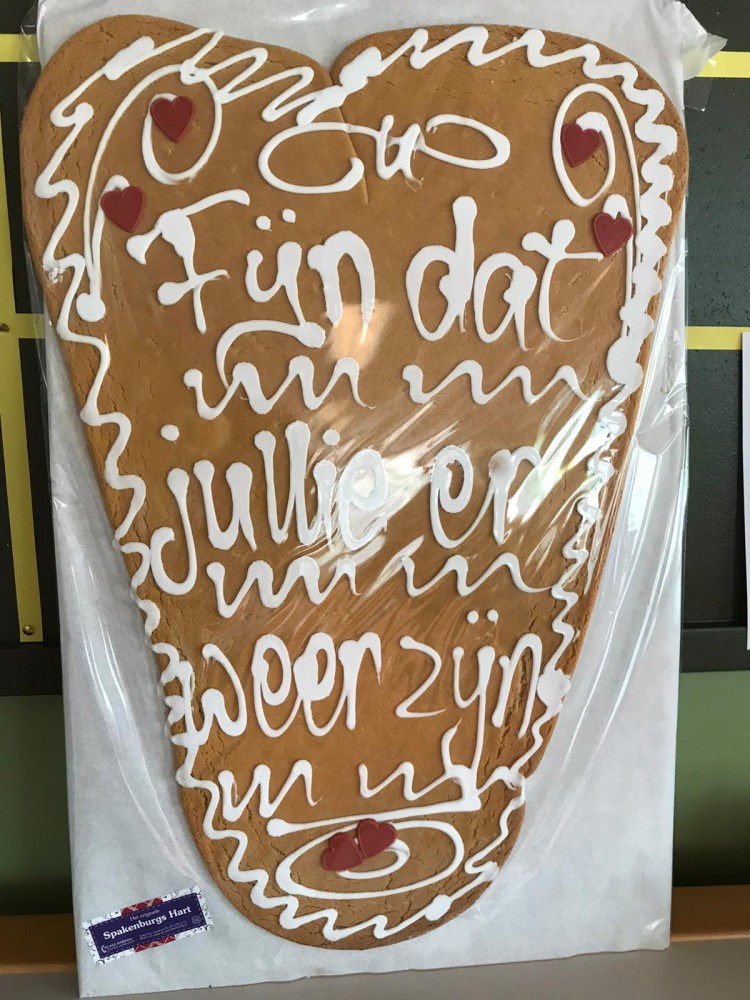 Fijn dat
jullie er
weer zijn
Het originele
Spakenburgs Hart